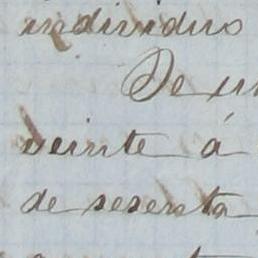 individuo
De un
veinte á
de sesenta